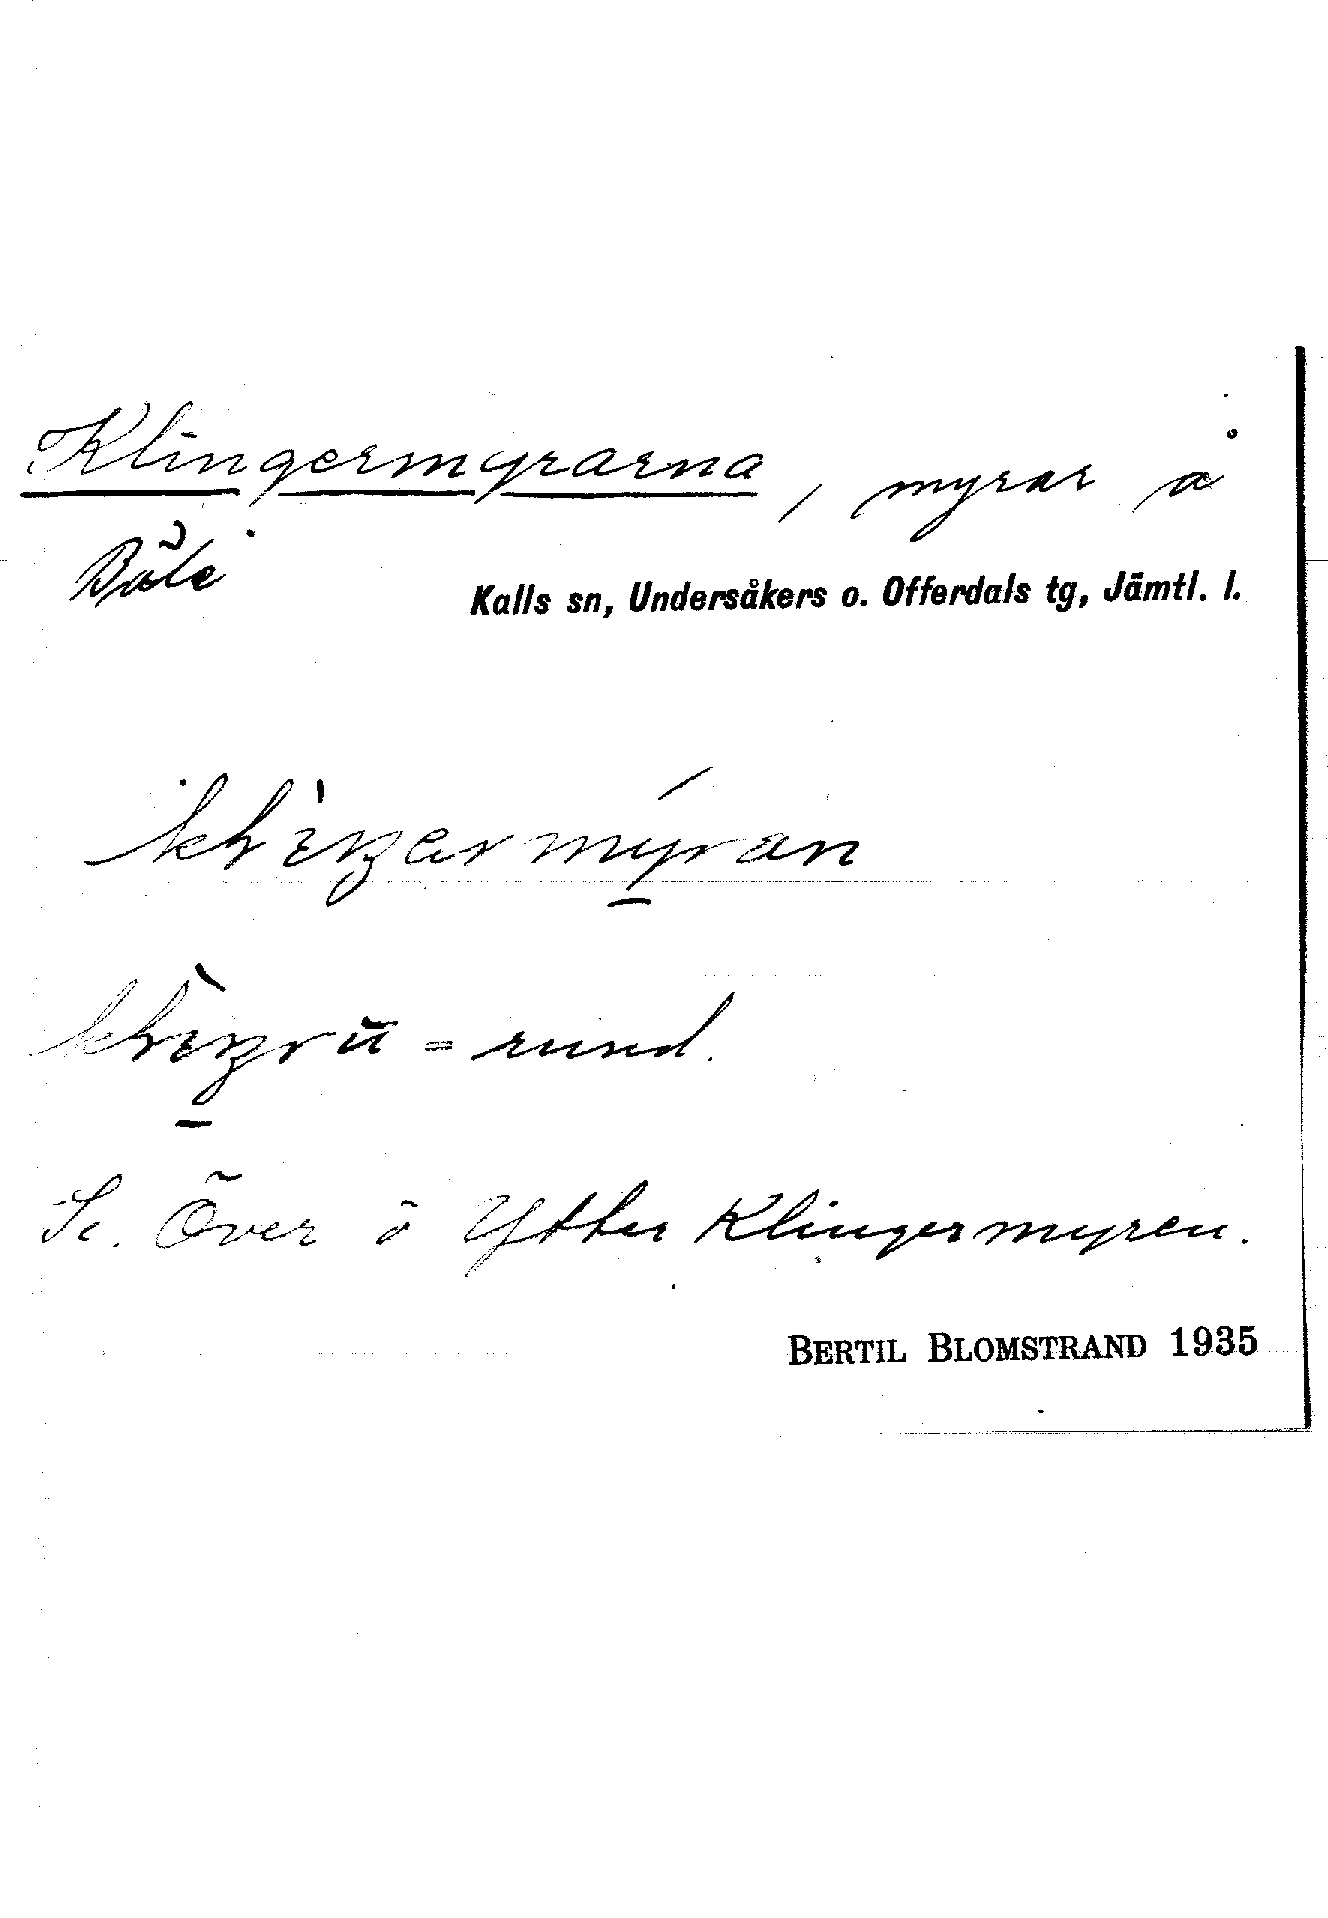 Klingermyrarna, myrar å
Böle
Kalls sn, Undersåkers o. Offerdals tg, Jämtl. l.
= rund.
Över o Ytter Klingermyren.
BERTIL BLOMSTRAND 1935